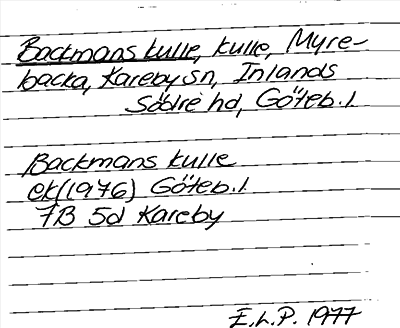 Backmans kulle, kulle, Myre-
backa, Kareby sn, Inlands
Södre hd, Göteb. l.
Backmans kulle
ek(1976) Göteb. l.
7B 5d Kareby
E.L.P. 1977